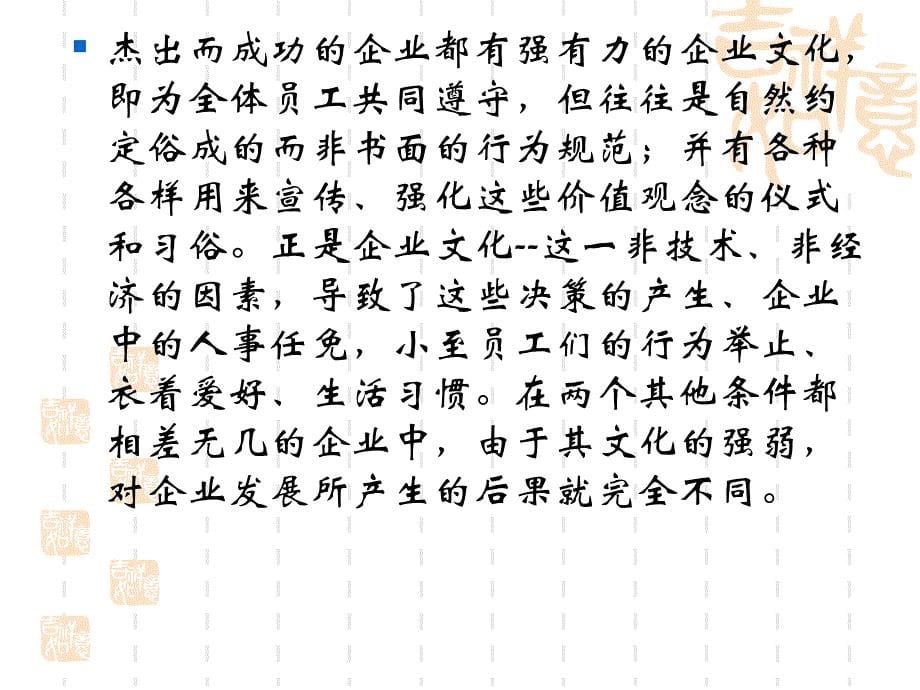 杰出而成功的企业都有强有力的企业文化，
即为全体员工共同遵守，但往往是自然约
定俗成的而非书面的行为规范；并有各种
各样用来宣传、强化这些价值观念的仪式
和习俗。正是企业文化--这一非技术、非经
济的因素，导致了这些决策的产生、企业
中的人事任免，小至员工们的行为举止、
衣着爱好、生活习惯。在两个其他条件都
相差无几的企业中，由于其文化的强弱，
对企业发展所产生的后果就完全不同。
吉祥如意
吉祥如意
吉祥如意
吉祥如意
吉祥如意
吉祥如意
吉祥如意